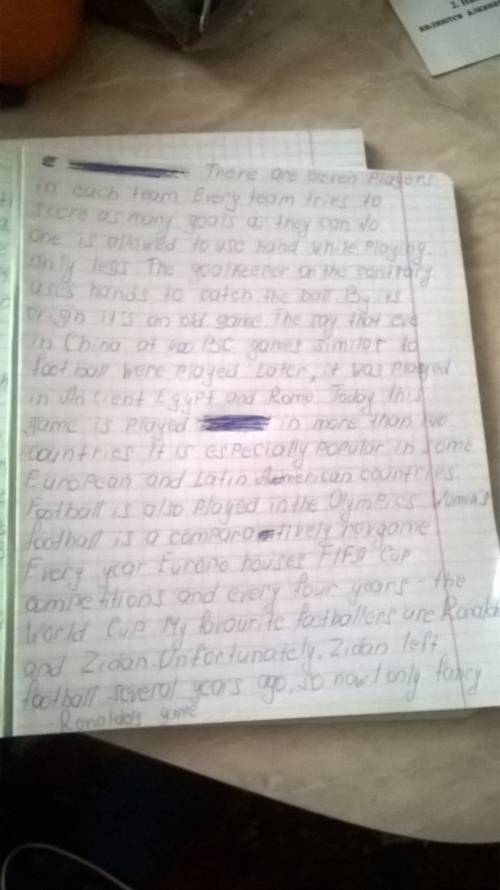 2. На
являются алкана
There are eleven Players
in each team Every team tries to
score as many goals as they can No
one is allowed to use hand while Playing.
only legs The goalkeeper on the contrary
uses hands to catch the ball By its
origin it's an old game. The say that
in China at 400 BC games similar to
football were Played Later, it was Played
in Ancient Egypt and Rome. Today this
game is Played in more than
countries It is especially Popular in some
European and Latin American countries.
Football is also Played in the Olympics Women's
football is a comparatively game.
Every year Europe houses FIFA Cup
competitions and every four years - the
World Cup My favourite footballers are
and Zidan. Unfortunately, Zidan left
football several years ago, so now I only fancy
Ronaldo's game